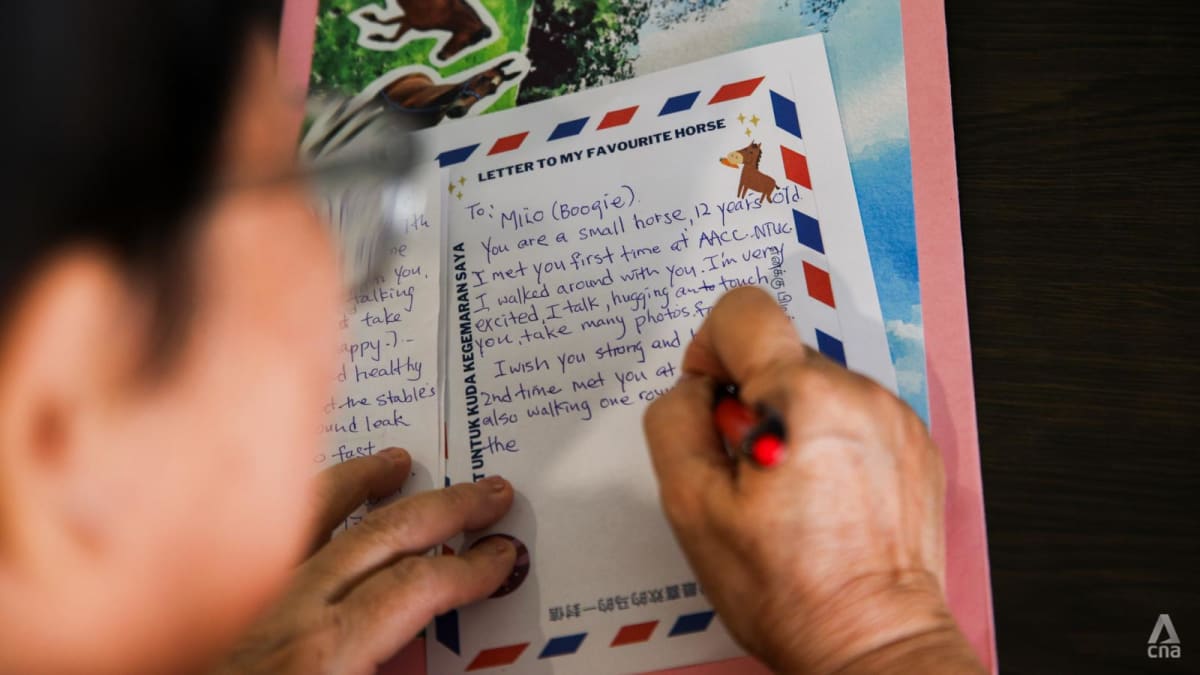 LETTER TO MY FAVOURITE HORSE
To: Miio (Boogie).
You are a small horse, 12 years old.
I met you first time at AACC.NTUC.
I walked around with you. I'm very
excited, I talk, hugging an to touch
you, take many photos.
I wish you strong and
2nd time met you at
also walking one rou
the
UNTUK KUDA KEGEMARAN SAYA
எனக்கு
喜欢的马的一封信
you.
talking
take
appy.)
healthy
the stable's
ound leak
fast
cna